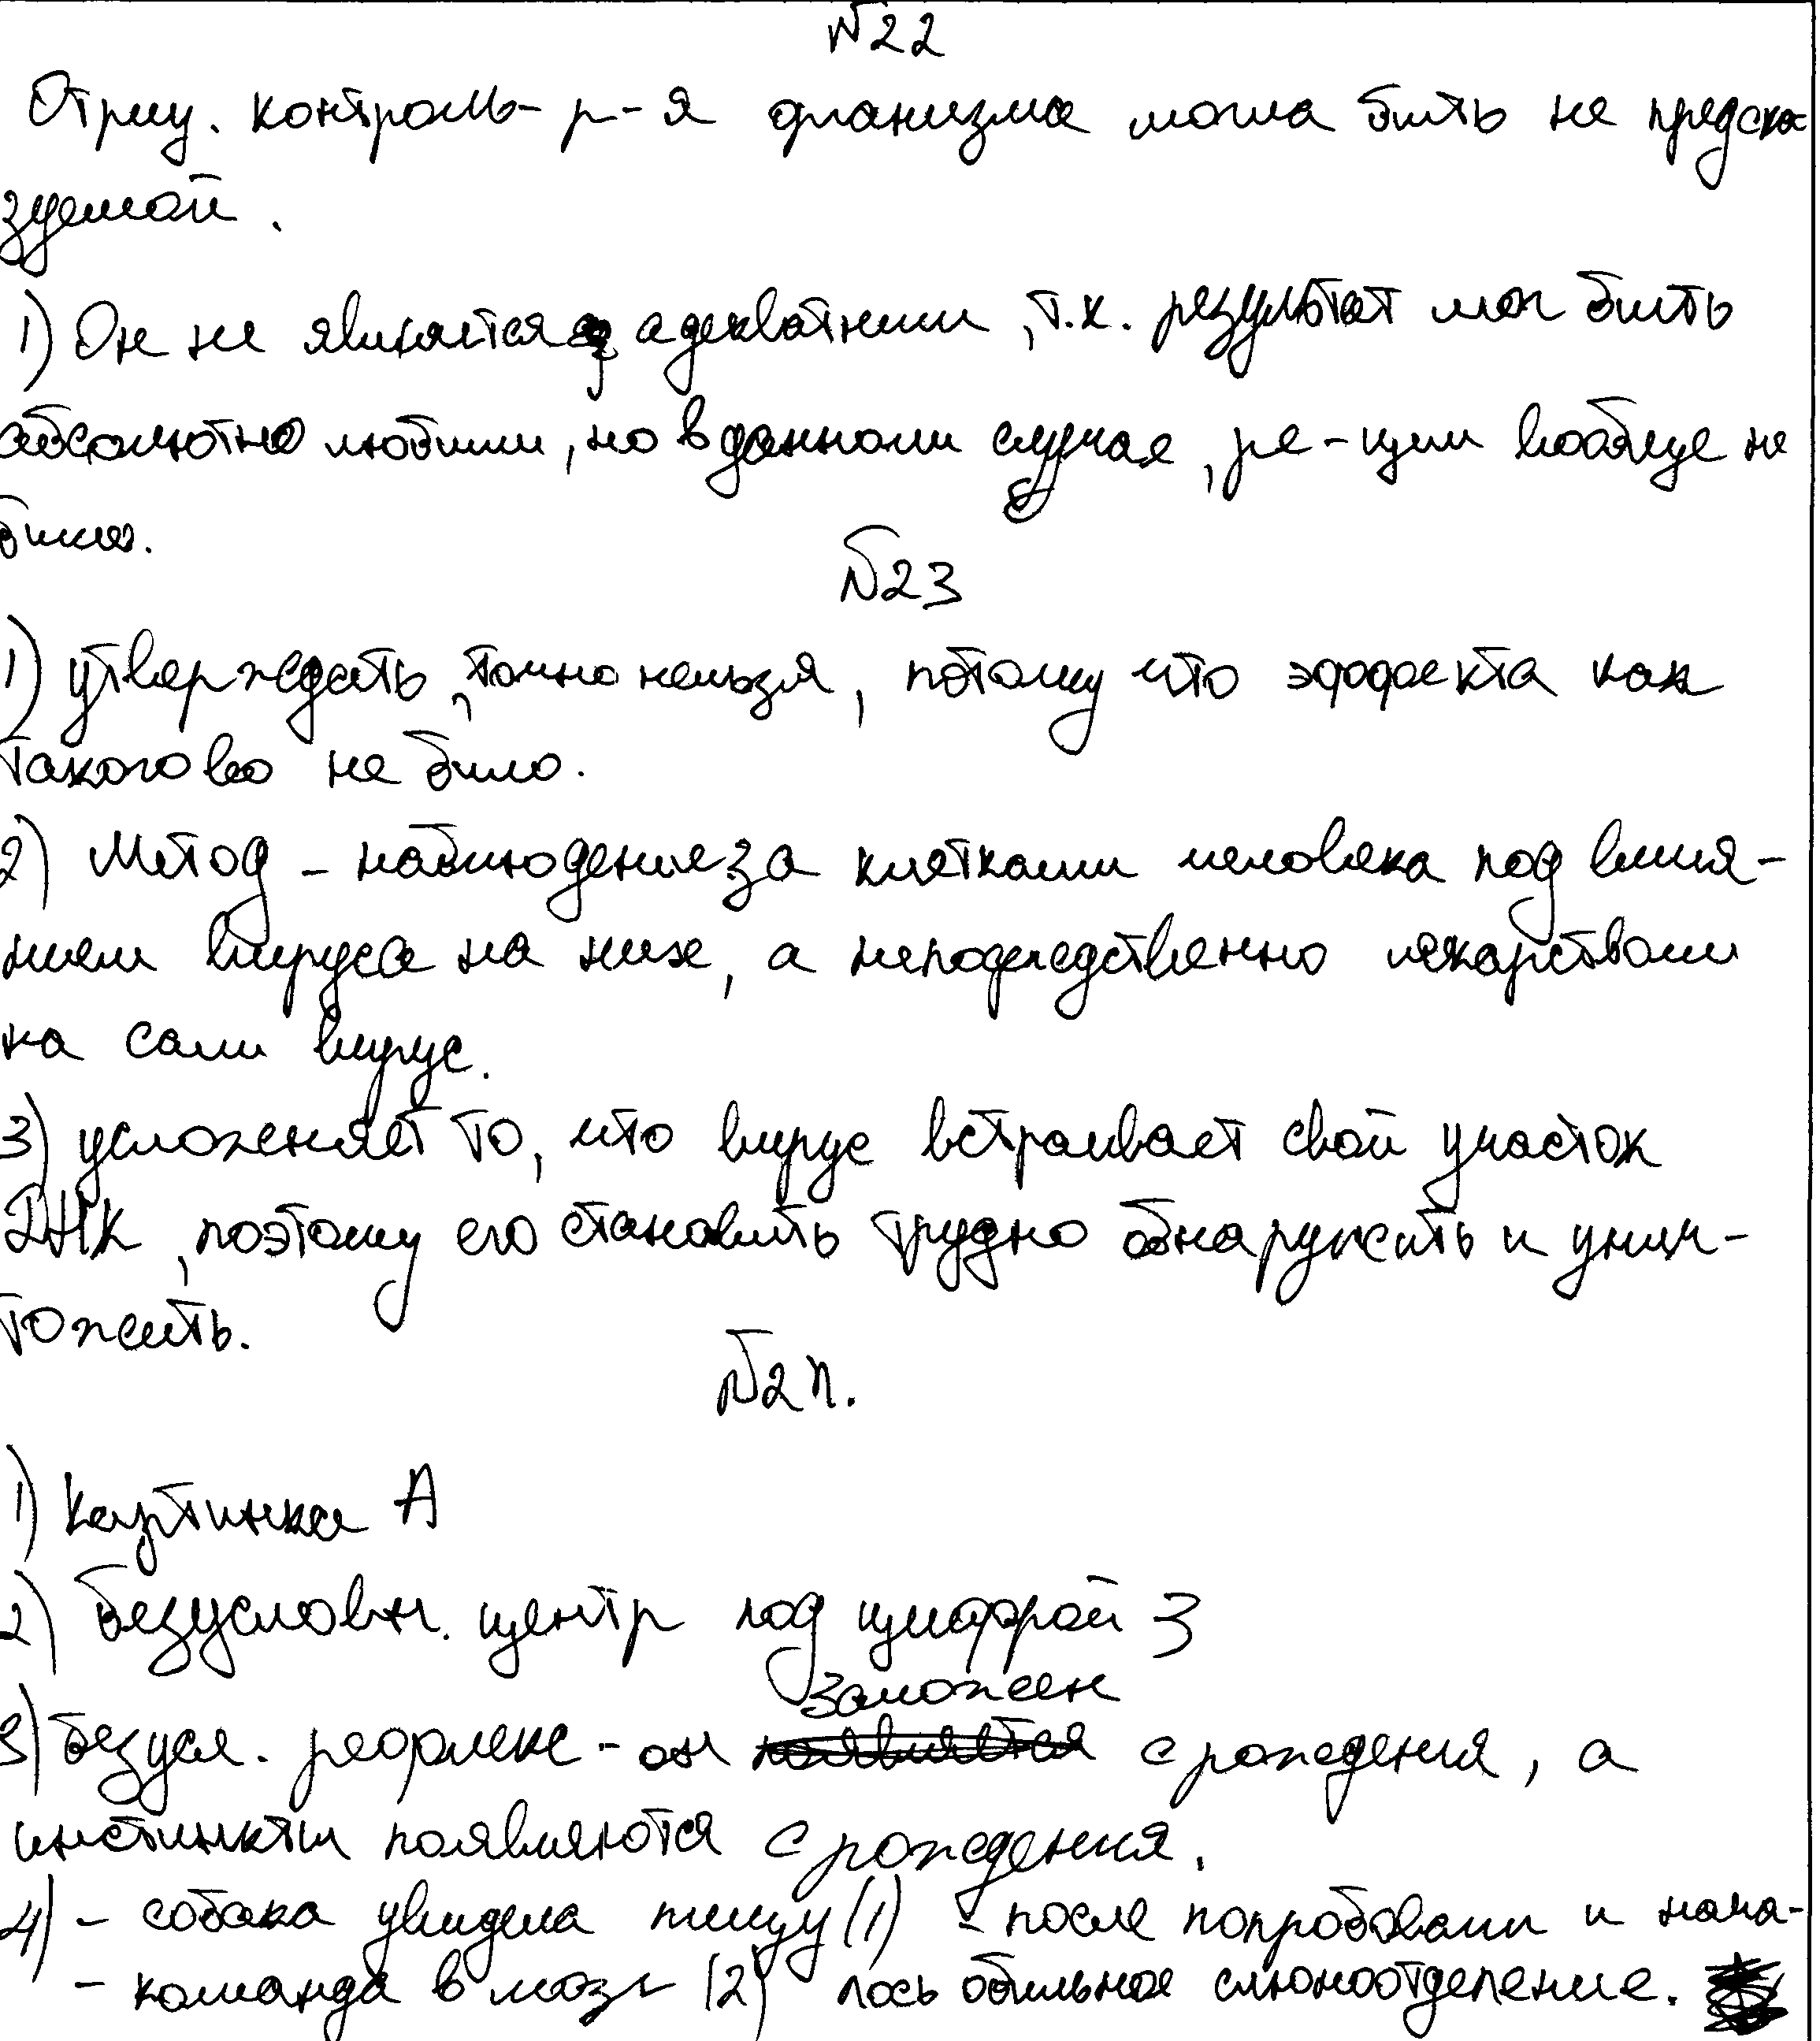 №22
Отриц. контроль- р-я организма могла быть не предска-
зуемой.
1) Он не является адекватным, т.к. результат мог быть
абсолютно любым, но в данном случае, ре-ции вообще не
было.
№23
1) утверждать, точно нельзя, потому что эффекта как
такогово не было.
2) Метод - наблюдение за клетками человека под влия-
нием вируса на них, а непосредственно лекарством
на сам вирус.
3) усложеняет то, что вирус встраивает свой участок
ДНК, поэтому его становить трудно обнаружить и унич-
тожить.
№24.
1) Картинка А
2) Безусловн. центр под цифрой 3
заложен
3) Безусл. рефлекс - он с рождения, а
инстинкты появляются с рождения.
4) - собака увидела пищу (1) - после попробовали и нача-
- команда в мозг (2) лось обильное слюноотделение.